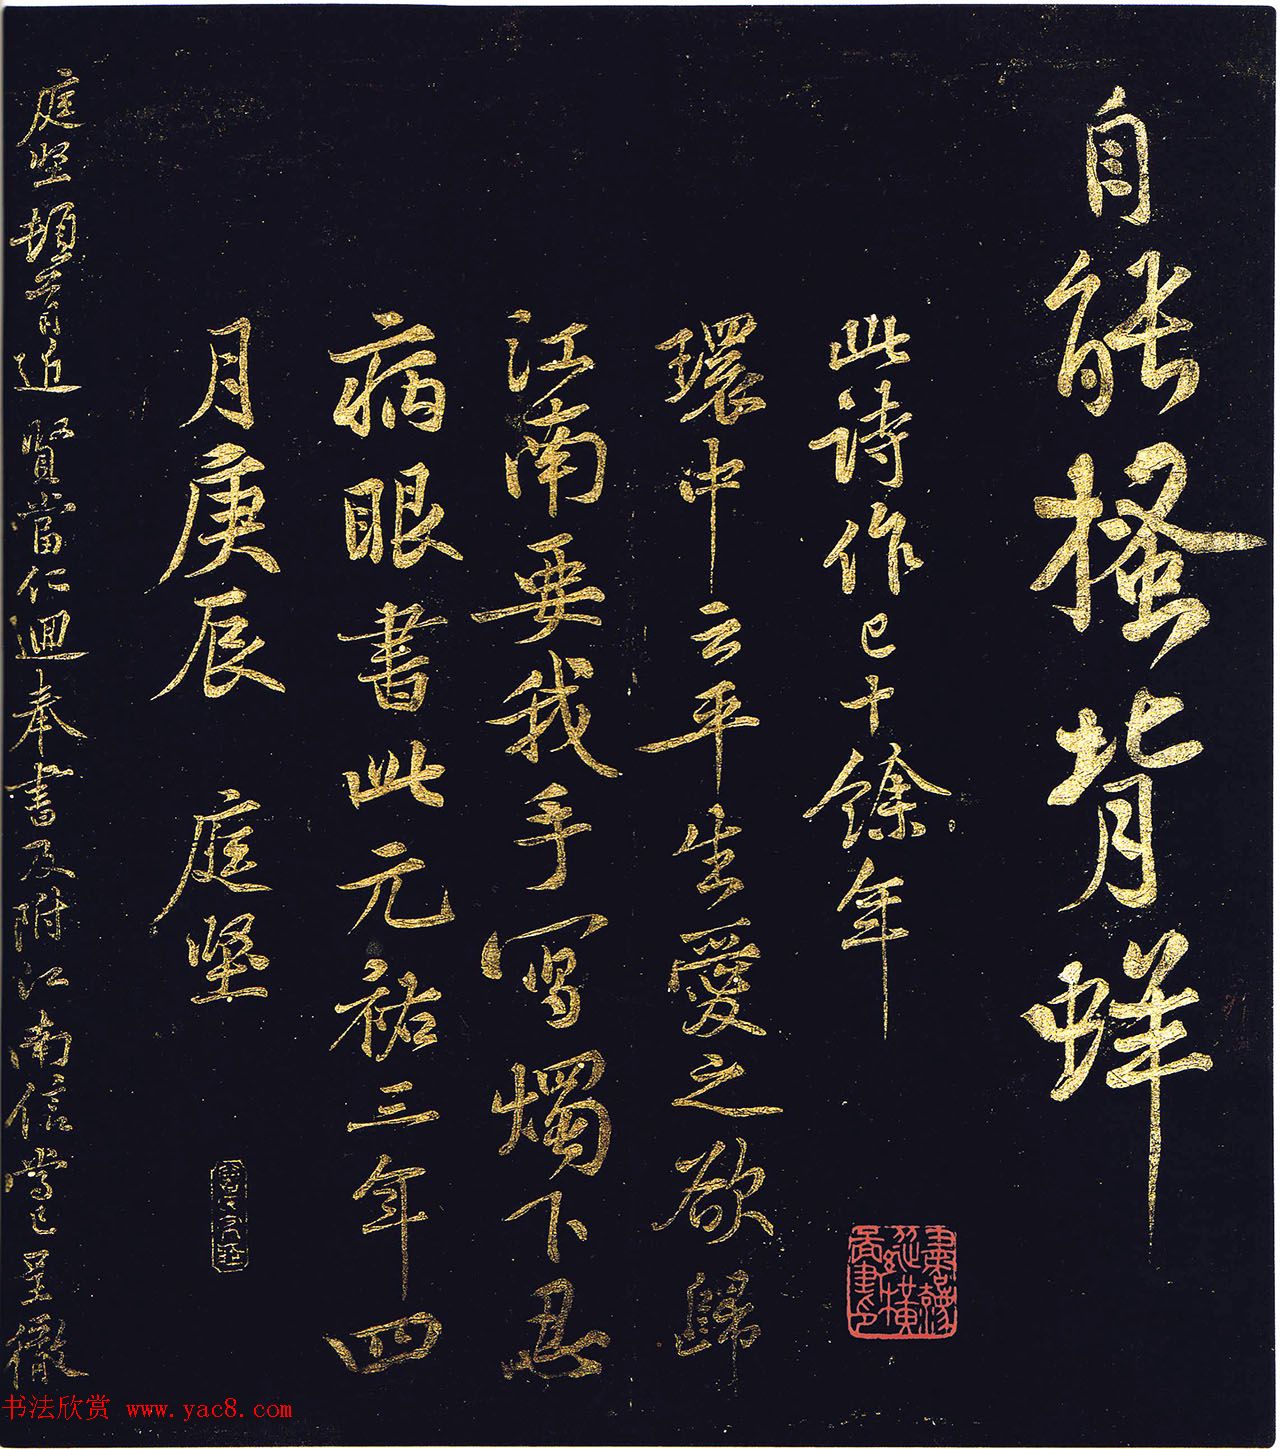 自能搔背蛘
此诗作已十馀年
環中云平生愛之欲歸
江南要我手写燭下忍
病眼書此元祐三年四
月庚辰 庭坚
庭坚頓首近賢當仁迴奉書及附江南信當已呈徹
书法欣赏 www.yac8.com